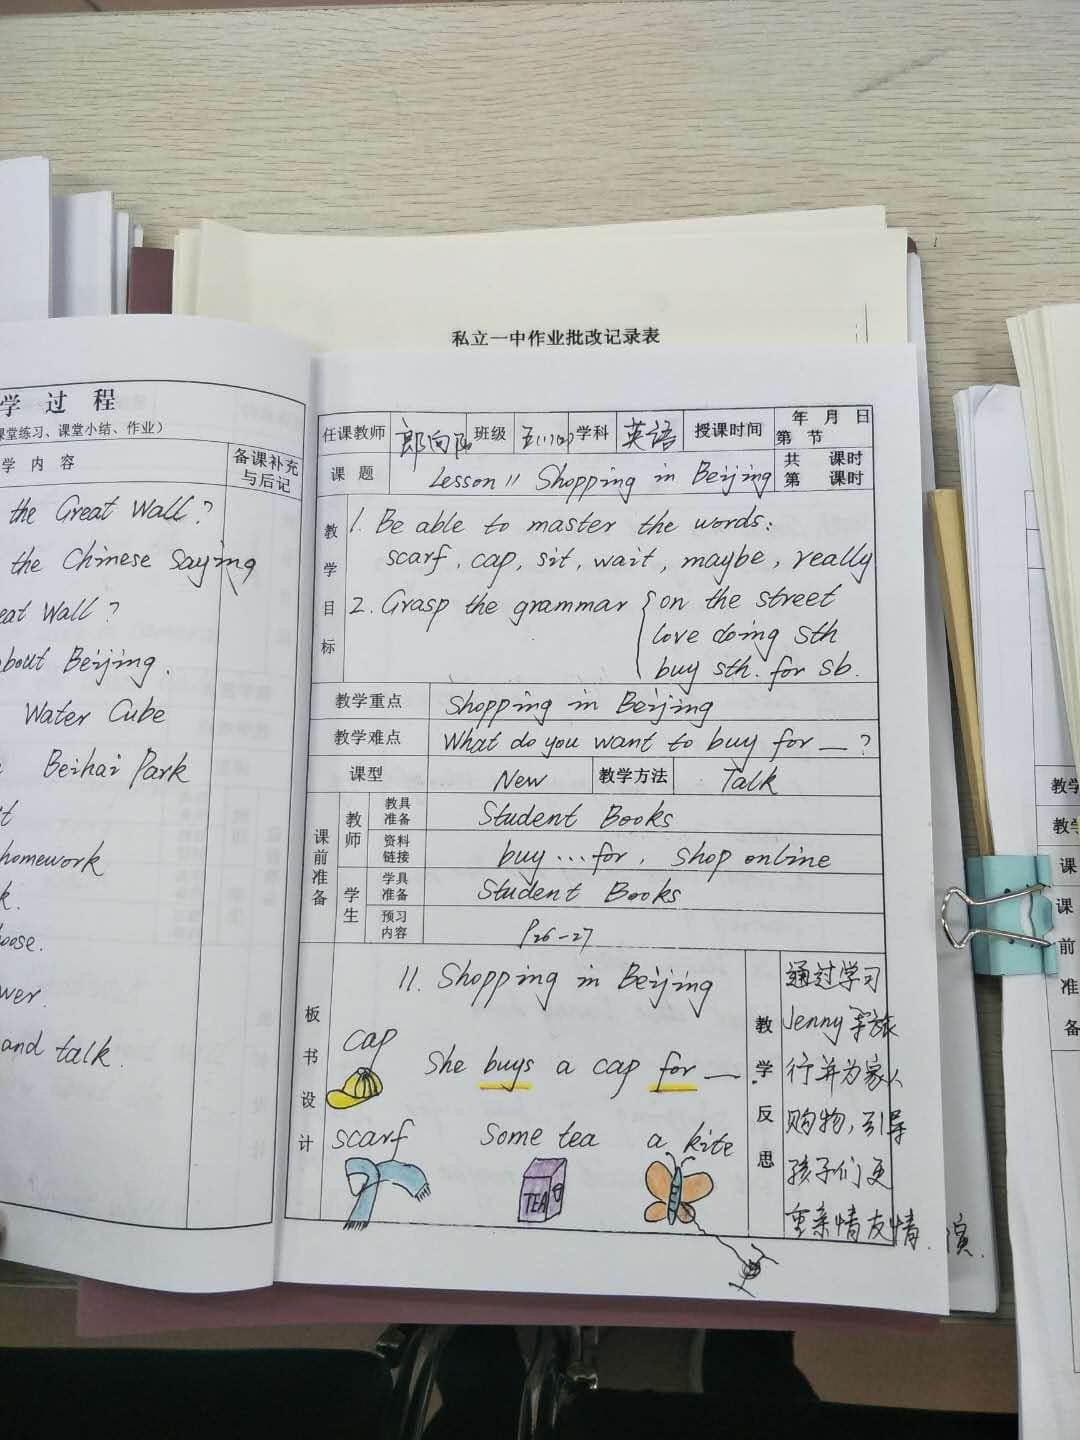 私立一中作业批改记录表
学 过 程
课堂练习、课堂小结、作业）
学 内 容
备课补充
与后记
the Great Wall?
the Chinese Saying
eat Wall?
about Beijing.
Water Cube
Beihai Park
homework
k.
oose.
wer.
and talk.
任课教师
班级
学科 英语 授课时间
年 月 日
第 节
课 题 Lesson 11 Shopping in Beijing
共 课时
第 课时
教学目标
1. Be able to master the words:
scarf, cap, sit, wait, maybe, really
2. Grasp the grammar { on the street
love doing sth
buy sth. for sb.
教学重点 Shopping in Beijing
教学难点 What do you want to buy for __?
课型 New 教学方法 Talk
课前准备
教师
教具准备 Student Books
资料链接 buy...for, shop online
学生
学具准备 Student Books
预习内容 P26-27
板书设计
11. Shopping in Beijing
cap
She buys a cap for __.
scarf some tea a kite
TEA
教学反思
通过学习
Jenny 旅
行并为家人
购物,引导
孩子们更
重亲情友情.
教学
课
课
前
准
备